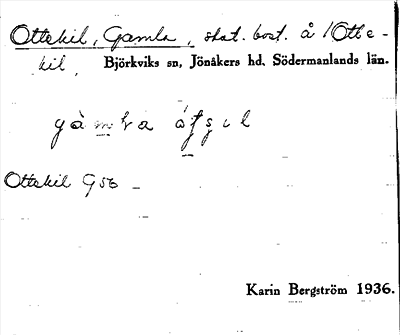 Ottekil, Gamla, skat. bost. å /Otte-
kil, Björkviks sn, Jönåkers hd, Södermanlands län.
Ottekil G 56 –
Karin Bergström 1936.